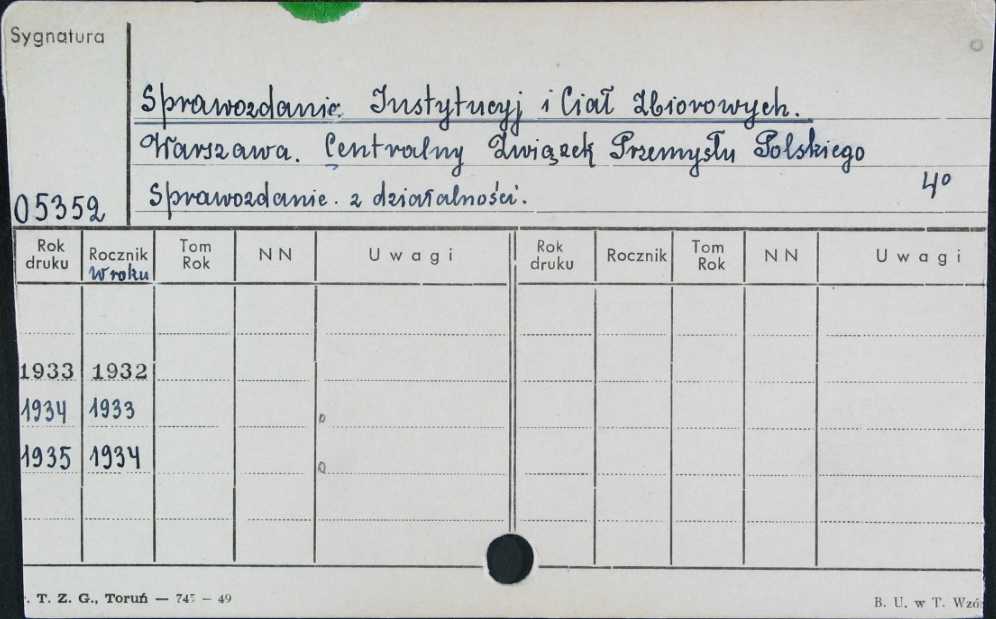 Sygnatura
Sprawozdanie. Instytucyj i Ciał Zbiorowych.
Warszawa. Centralny Związek Przemysłu Polskiego
Sprawozdanie. z działalności.
4º
05352
Rok druku Rocznik w roku Tom Rok NN Uwagi Rok druku Rocznik Tom Rok NN Uwagi
1933 1932
1934 1933
1935 1934
. T. Z. G., Toruń — 745 — 49
B. U. w T. Wzó